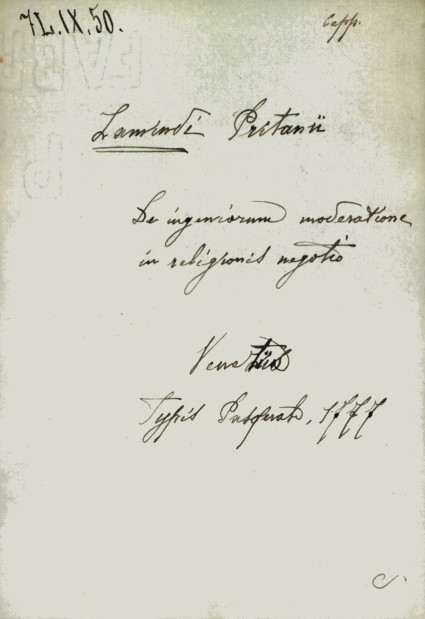 7L.IX.50.
Capp.
Lamindi Pritanii
De ingeniorum moderatione
in religionis negotio
Venetiis
Typis Pasquali, 1777
C.